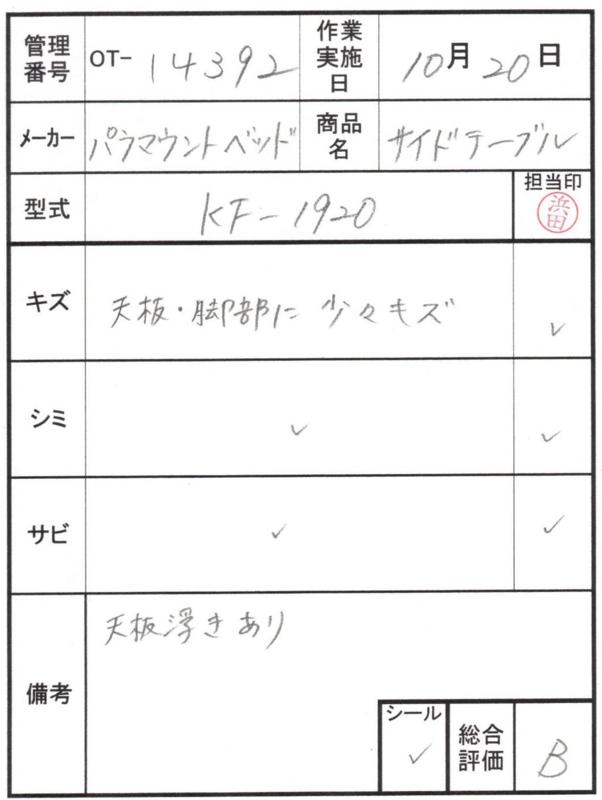 管理番号 OT-14392 作業実施日 10月20日
メーカー パラマウントベッド 商品名 サイドテーブル
型式 KF-1920 担当印 浜田
キズ 天板・脚部に少々キズ ✓
シミ ✓ ✓
サビ ✓ ✓
備考 天板浮きあり
シール ✓ 総合評価 B